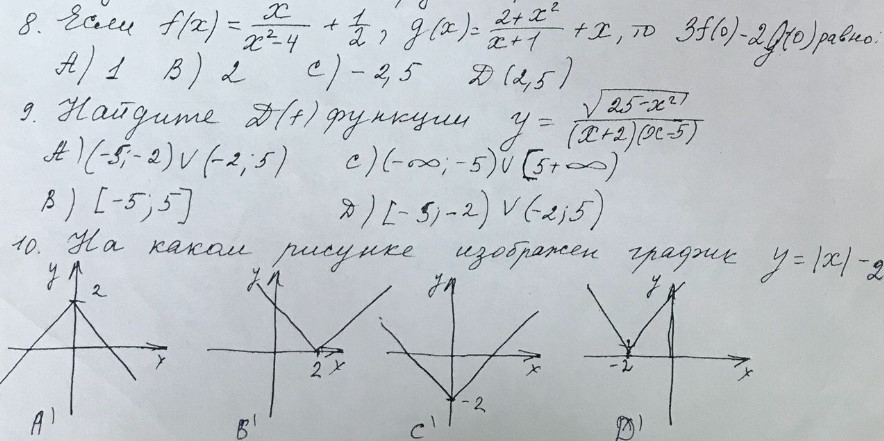 8. Если f(x) = x/(x²-4) + 1/2, g(x) = (2+x²)/(x+1) + x, то 3f(0)-2g(0) равно:
A) 1 B) 2 C) -2,5 D (2,5)
9. Найдите D(f) функции y = √(25-x²)/((x+2)(x-5))
A) (-5;-2) ∨ (-2;5) C) (-∞;-5) ∨ [5+∞)
B) [-5;5] D) [-5;-2) ∨ (-2;5)
10. На каком рисунке изображен график y=|x|-2
y 2 x y 2 x y -2 x y -2 x
A' B' C' D'